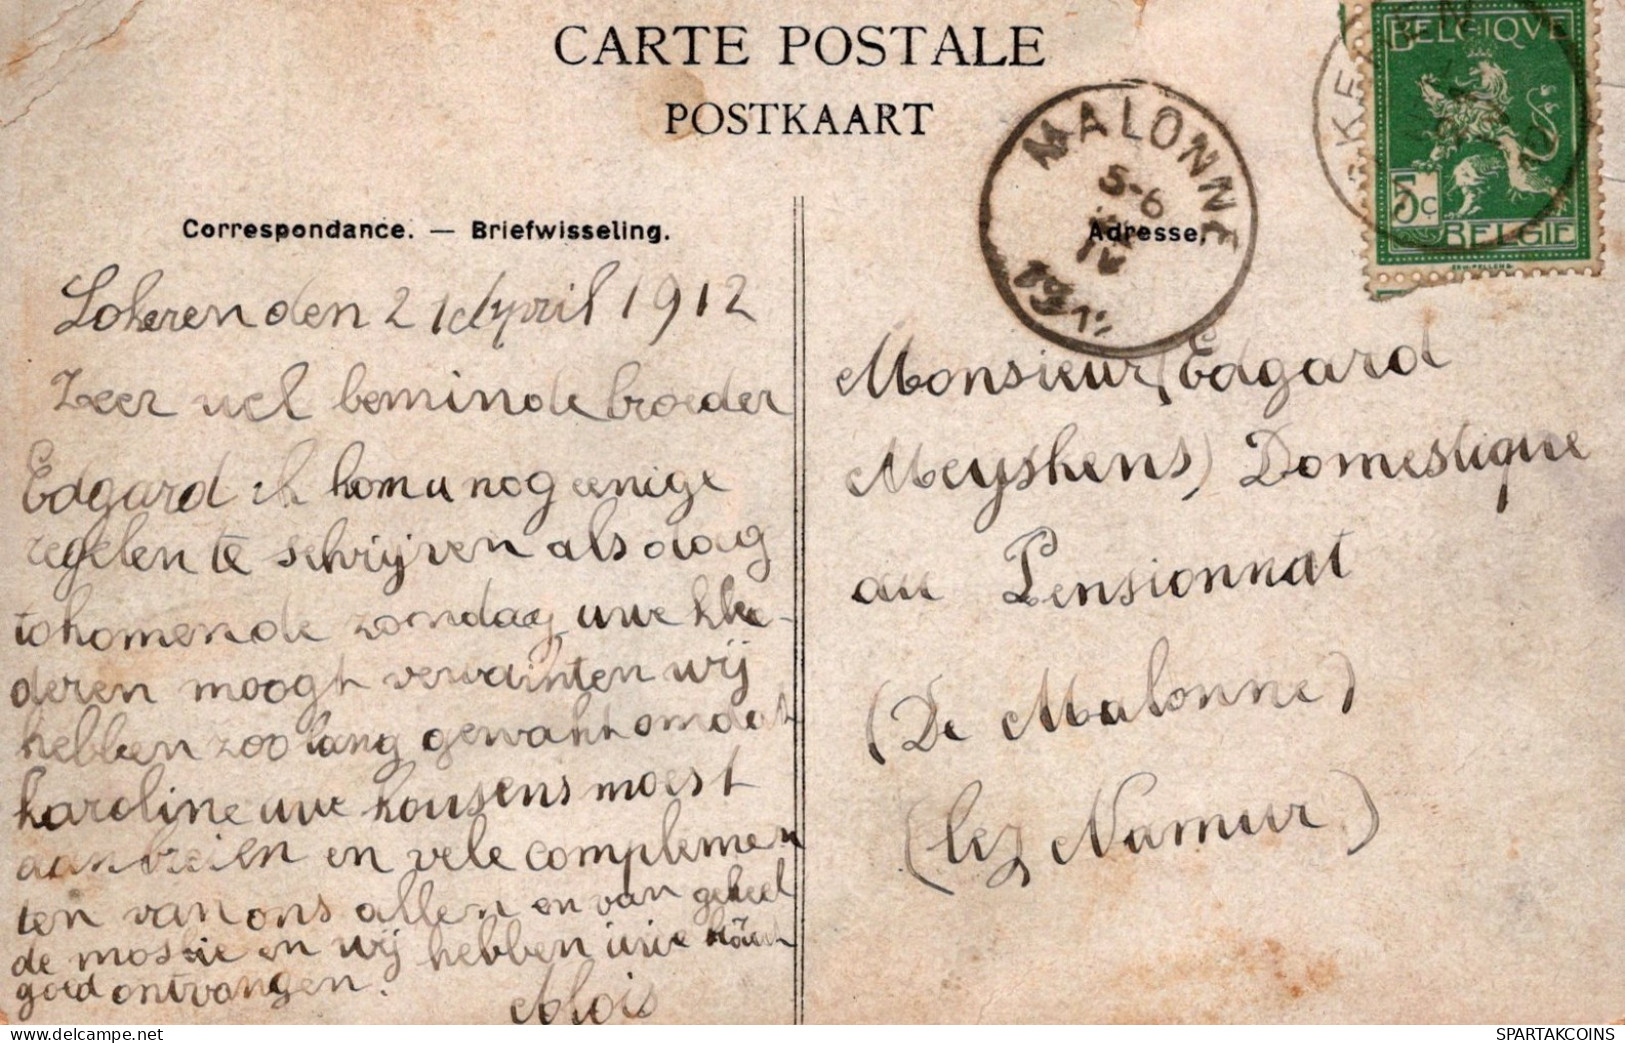 CARTE POSTALE
POSTKAART
BELGIQUE
5c
BELGIË
MALONNE
5-6
IV
Correspondance. — Briefwisseling.
Adresse.
Lokeren den 21 April 1912
Zeer vel beminde broeder
Edgard ik kom u nog eenige
regelen te schrijven als dag
tokomende zondag uwe klee-
deren moogt verwainten wij
hebben zoo lang gewakt omdat
karoline uwe kousens moest
aanbreien en vele complemen
ten van ons allen en van geheel
de mossie en wij hebben uwe
goed ontvangen.
Alois
Monsieur, Edgard
Meyskens, Domestique
au Pensionnat
(De Malonne)
(lez Namur)
www.delcampe.net
SPARTAKCOINS